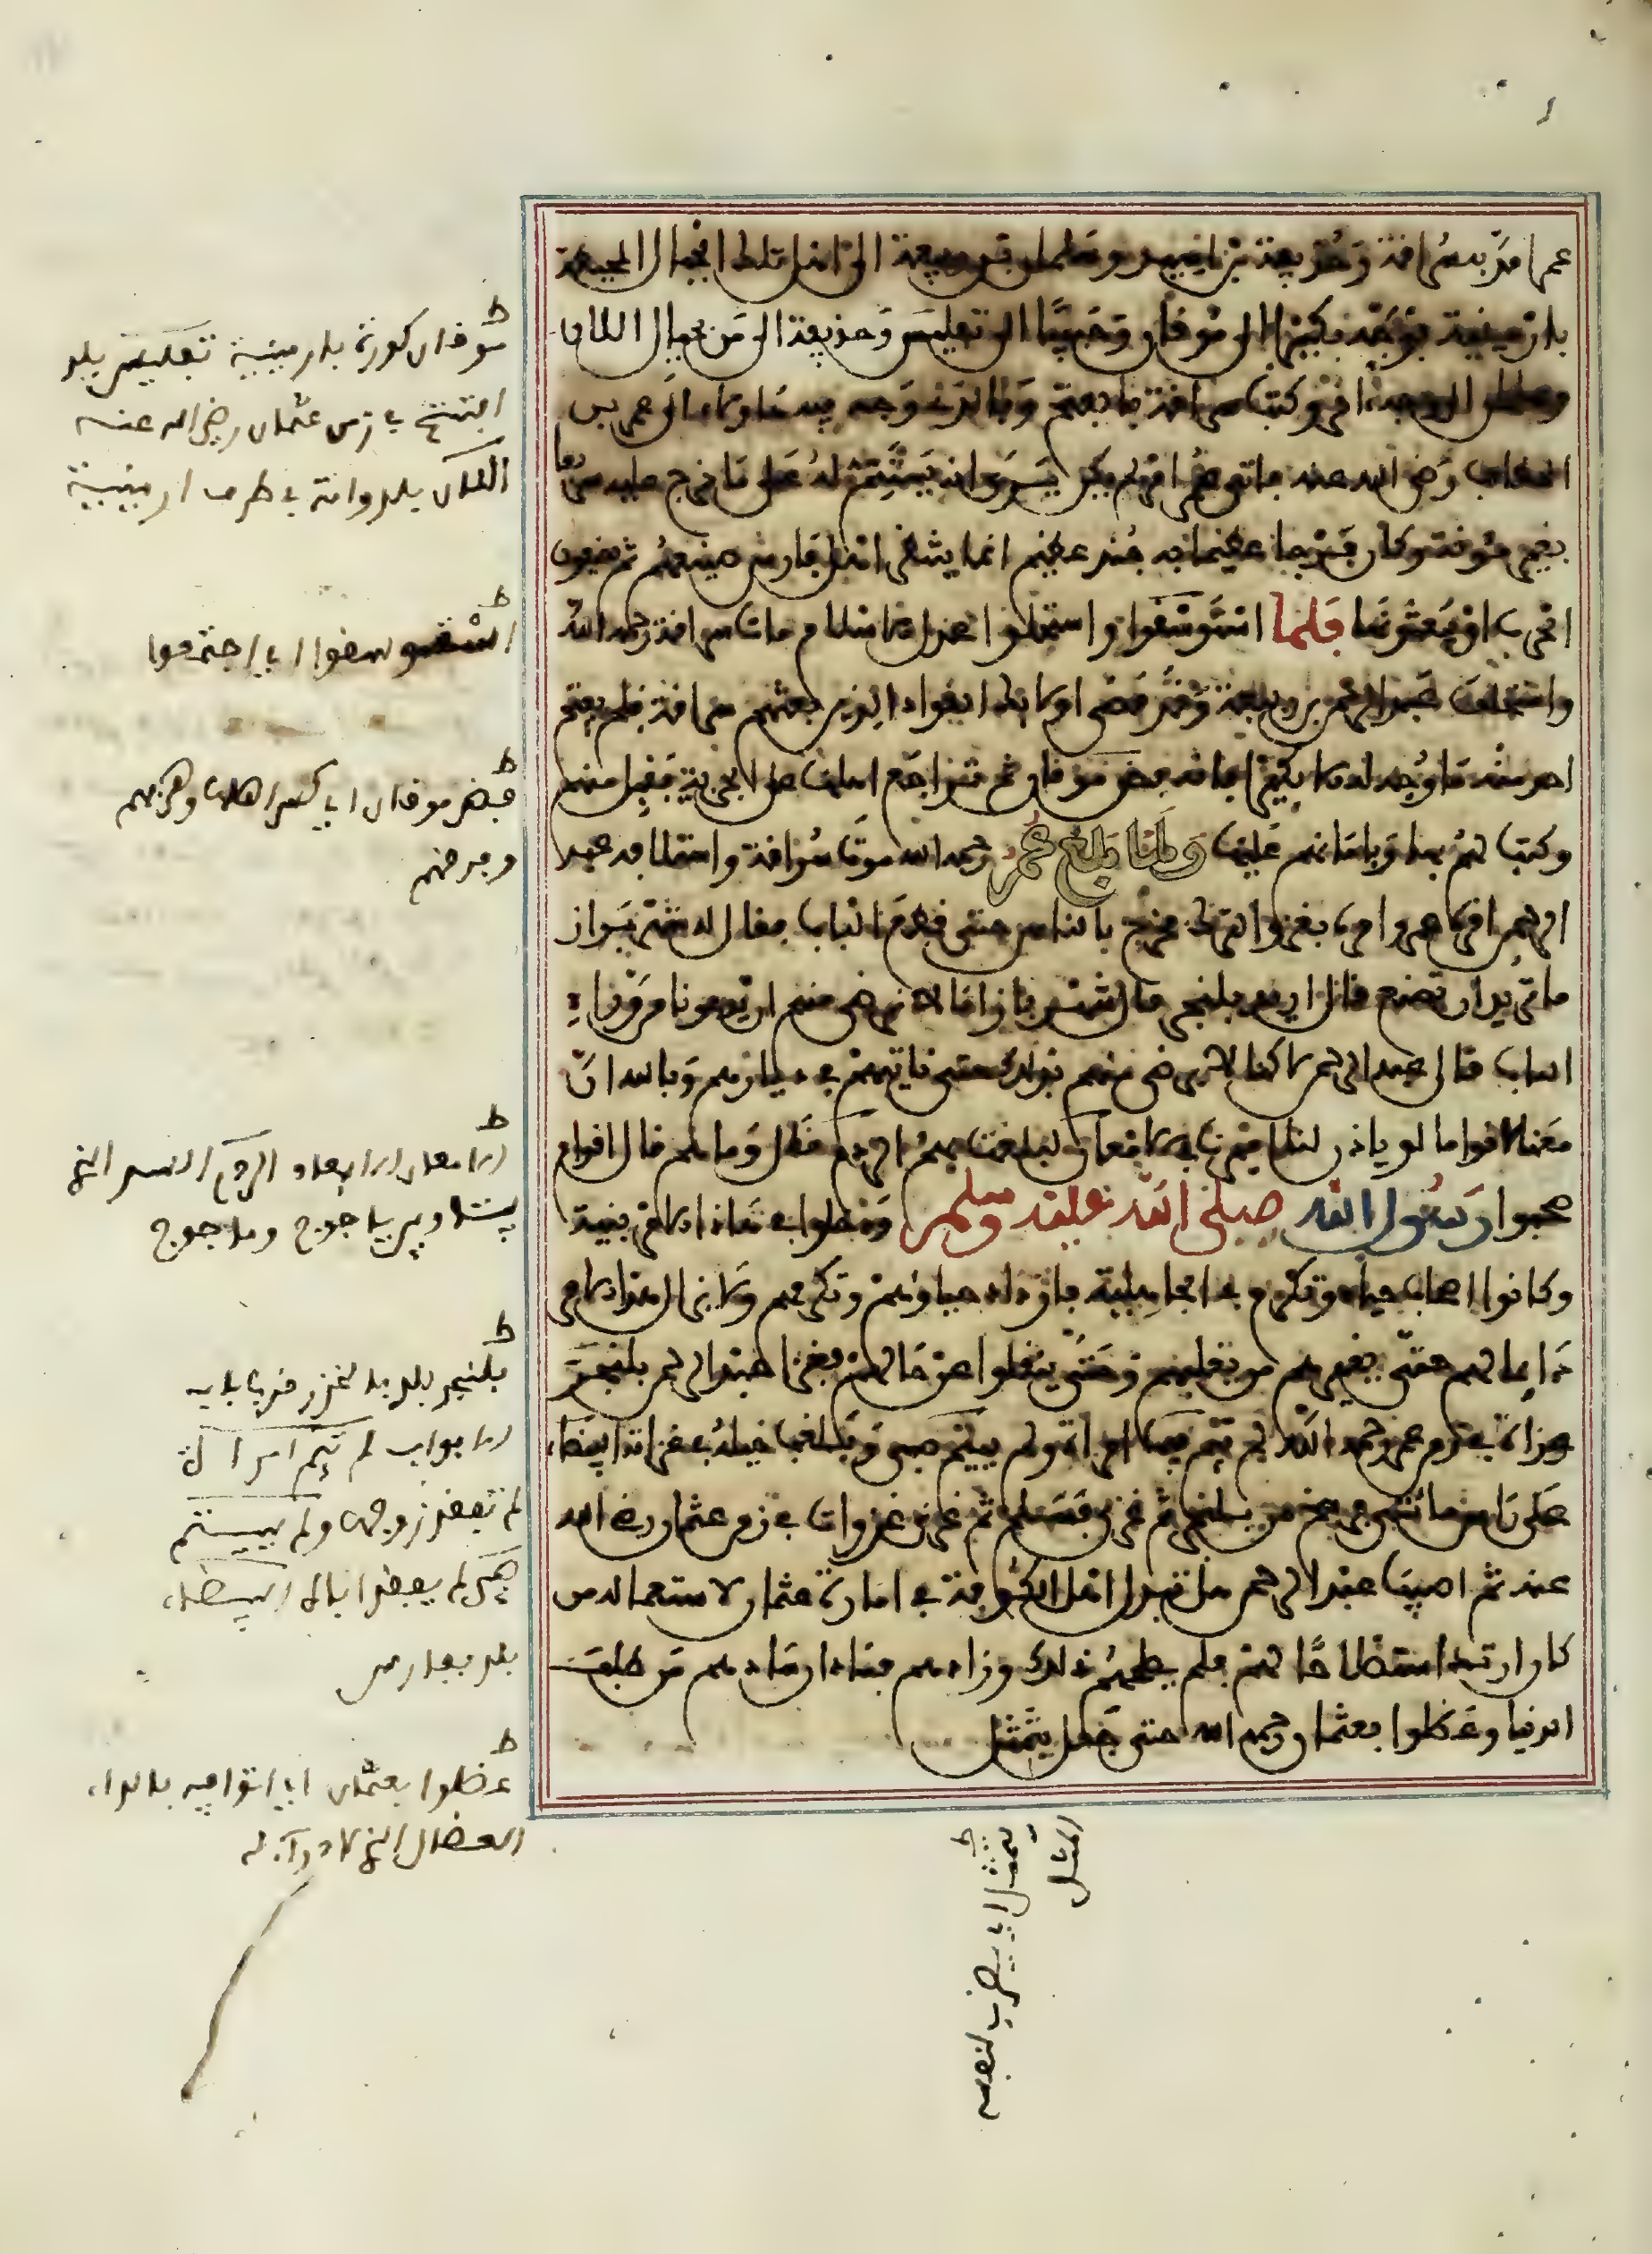 بارمينية فوجه بكيرا الى موقان وحبيبا الى تفليس وحذيفة الى من بجبال اللان
وسلمان الى الوجه الاخر وكتب سراقة بالفتح وبالذي وجه فيه هاولاء الى عمر بن
الخطاب رضي الله عنه فاتى عمر امر لم يكن يرى انه يستتم له على ما خرج عليه سريعا
بغير مؤونة وكان فرجا عظيما به جند عظيم انما ينتظر اهل فارس صنيعهم ثم يضعون
الحرب او يبعثونها فلما استوسقوا واستحلوا عدل الاسلام مات سراقة رحمه الله
واستخلف عبد الرحمن بن ربيعة وقد مضى اولائك القواد الذين بعثهم سراقة فلم يفتح
احد منهم ما وجه له الا بكير فانه فض موقان ثم تراجع اهلها على الجزية فقبل منهم
وكتب لهم بها وبامانهم عليها ولما بلغ عمر رحمه الله موت سراقة واستخلافه عبد
الرحمن اقره على وامره بغزو الترك فخرج بالناس حتى قطع الباب فقال له شهربراز
ما تريد ان تصنع قال اريد بلنجر قال شهربراز انا لنرضى منهم ان يدعونا من دون
الباب قال عبد الرحمن لاكنا لا نرضى منهم بذلك حتى ناتيهم في ديارهم وبالله ان
معنا لاقواما لو ياذن لنا اميرنا في الامعان لبلغت بهم الردم قال وما هم قال اقوام
صحبوا رسول الله صلى الله عليه وسلم ودخلوا في هذا الامر بنية
وكانوا اصحاب حياء وتكرم في الجاهلية فازداد حياؤهم وتكرمهم ولا يزال هذا الامر
دائما لهم حتى يغيرهم من يغلبهم وحتى ينقلوا عن حالهم فغزا عبد الرحمن بلنجر
غزاة في زمن عمر رحمه الله لم تئم فيها امراة ولم ييتم صبي وبلغت خيله في غزاته البيضاء
على راس مائتي فرسخ من بلنجر ثم غزا فسلم ثم غزا غزوات في زمن عثمان رضي الله
عنه ثم اصيب عبد الرحمن حين تبدل اهل الكوفة في امارة عثمان لاستعماله من
كان ارتد استصلاحا لهم فلم يصلحهم ذلك وزادهم فسادا ان سادهم من طلب
الدنيا وعضلوا بعثمان رحمه الله حتى جعل يتمثل
موقان كورة بارمينية تفليس بلد
افتتح في زمن عثمان رضي الله عنه
اللان بلد وامة في طرف ارمينية
استوسقوا اي اجتمعوا
فض موقان اي كسر اهلها وهزمهم
وفرقهم
الامعان الابعاد الردم السد الذي
بيننا وبين ياجوج وماجوج
بلنجر بلد بالخزر خلف باب
الابواب لم تئم امراة
لم تفقد زوجها ولم ييتم
صبي لم يفقد اباه البيضاء
بلد بفارس
عضلوا بعثمان اي اتوا فيه بالداء
العضال الذي لا دواء له
يتمثل اي يضرب لنفسه
المثل